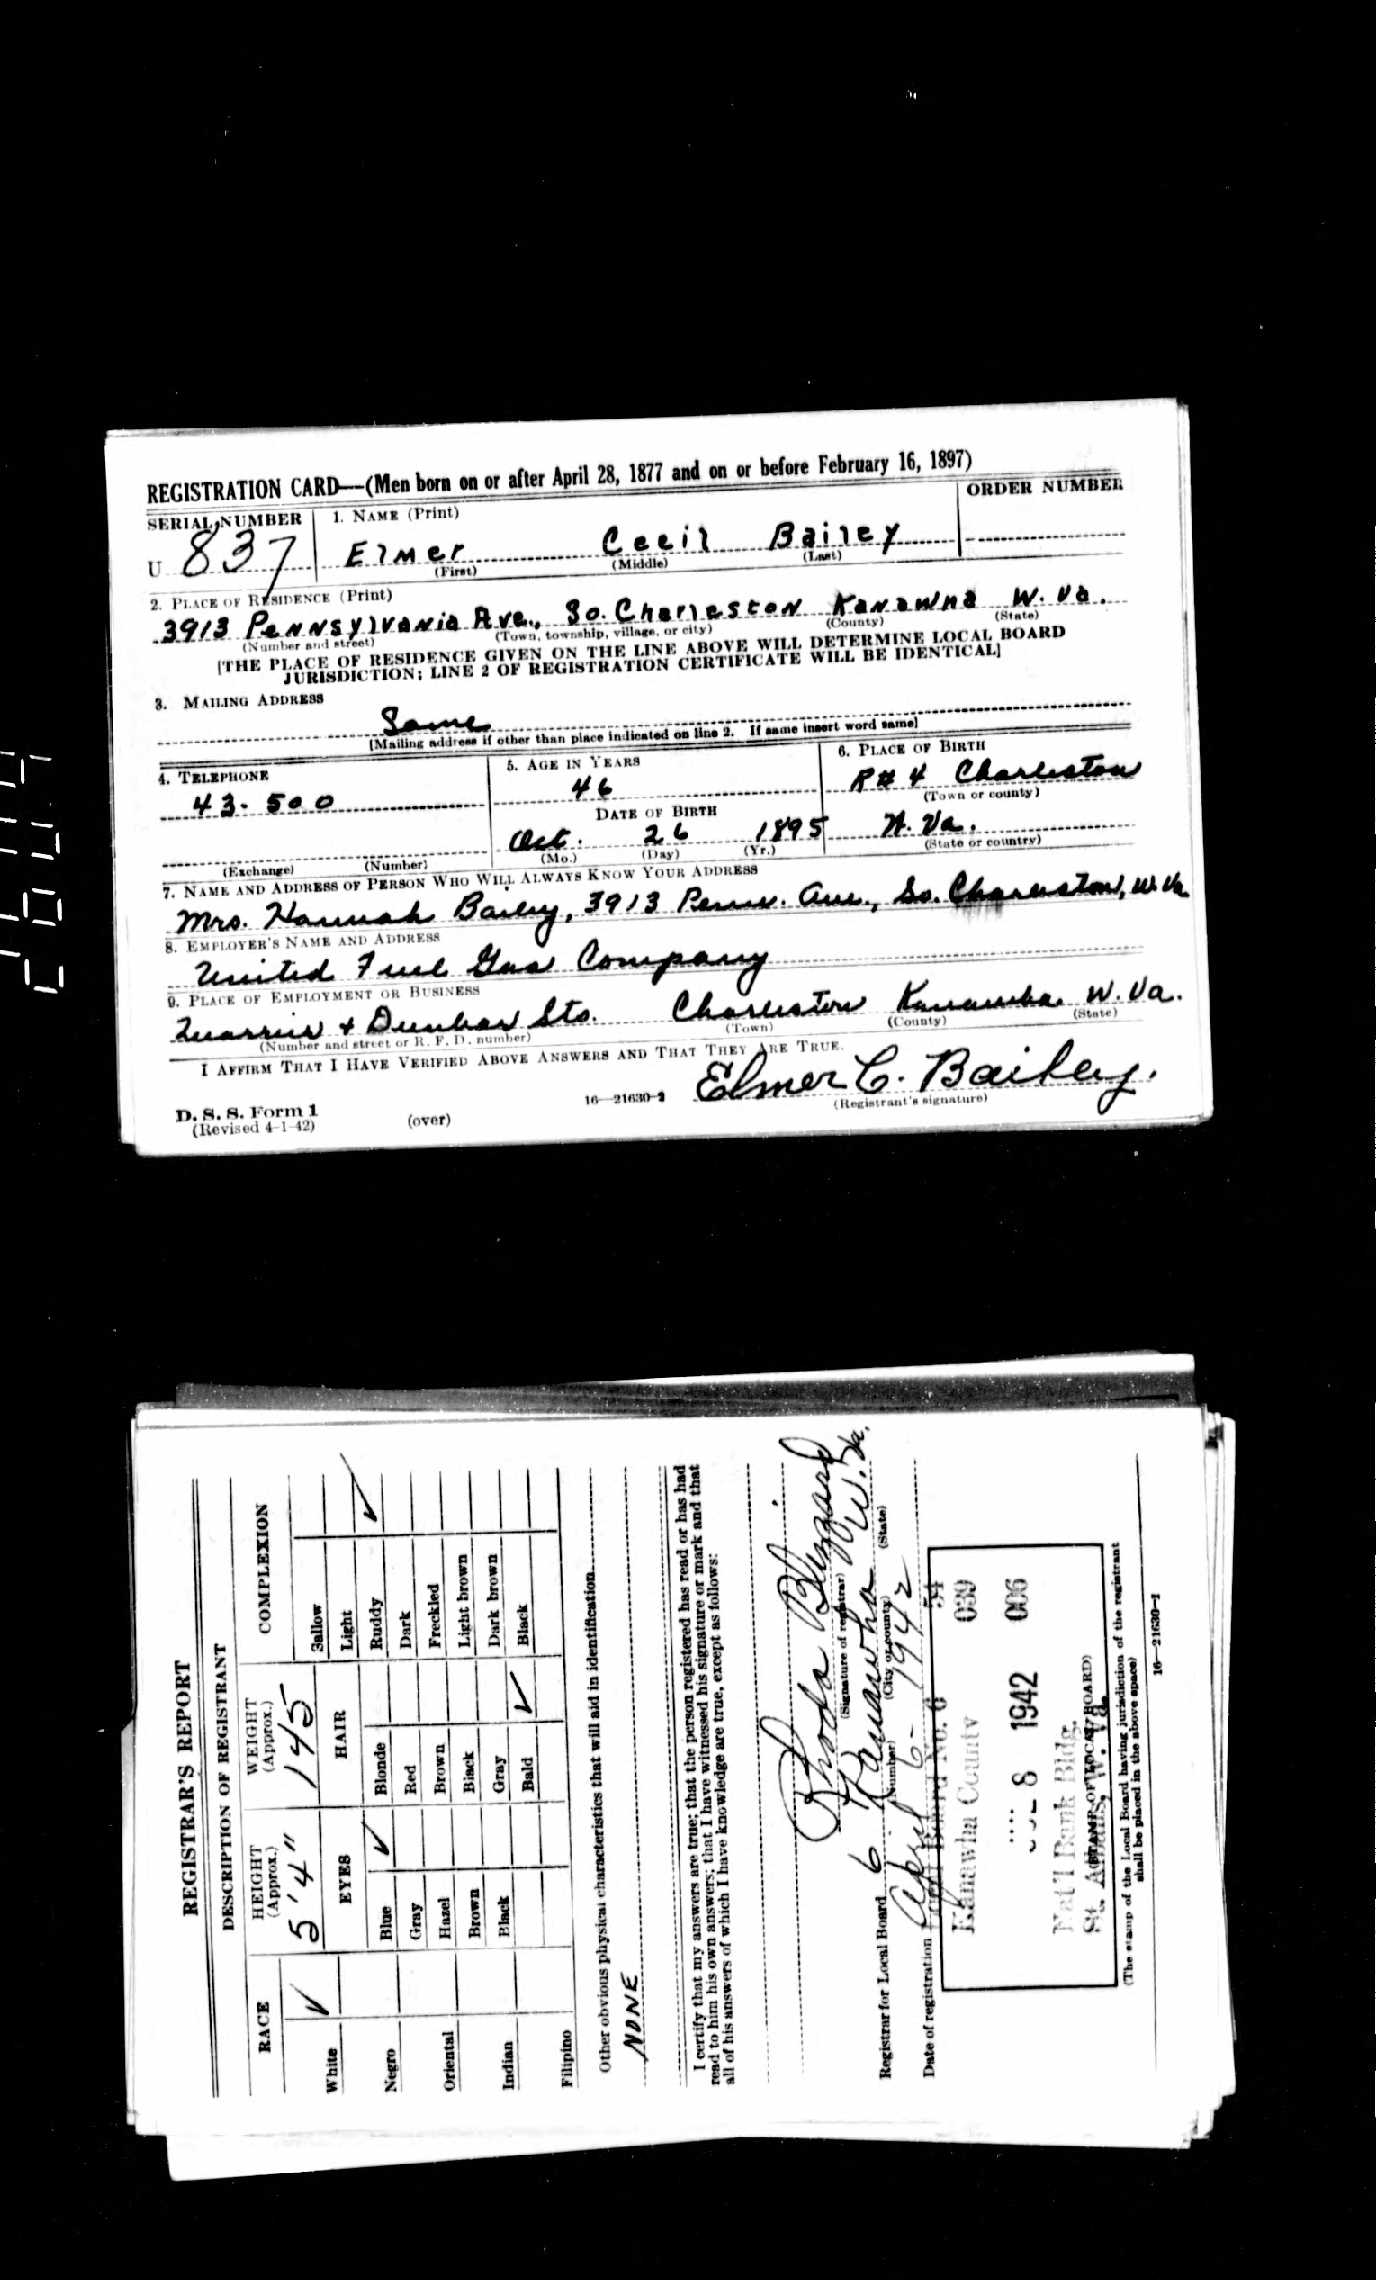 REGISTRATION CARD—(Men born on or after April 28, 1877 and on or before February 16, 1897)
SERIAL NUMBER
1. NAME (Print)
ORDER NUMBER
U 837
Elmer Cecil Bailey
(First) (Middle) (Last)
2. PLACE OF RESIDENCE (Print)
3913 Pennsylvania Ave., So. Charleston Kanawha W. Va.
(Number and street) (Town, township, village, or city) (County) (State)
[THE PLACE OF RESIDENCE GIVEN ON THE LINE ABOVE WILL DETERMINE LOCAL BOARD
JURISDICTION; LINE 2 OF REGISTRATION CERTIFICATE WILL BE IDENTICAL]
3. MAILING ADDRESS
Same
[Mailing address if other than place indicated on line 2. If same insert word same]
4. TELEPHONE
5. AGE IN YEARS
6. PLACE OF BIRTH
43-500
46
R#4 Charleston
(Town or county)
DATE OF BIRTH
Oct. 26 1895
W. Va.
(Exchange) (Number)
(Mo.) (Day) (Yr.)
(State or country)
7. NAME AND ADDRESS OF PERSON WHO WILL ALWAYS KNOW YOUR ADDRESS
Mrs. Hannah Bailey, 3913 Penn. Ave., So. Charleston, W. Va
8. EMPLOYER'S NAME AND ADDRESS
United Fuel Gas Company
9. PLACE OF EMPLOYMENT OR BUSINESS
Quarrier + Dunbar Sts. Charleston Kanawha W. Va.
(Number and street or R. F. D. number) (Town) (County) (State)
I AFFIRM THAT I HAVE VERIFIED ABOVE ANSWERS AND THAT THEY ARE TRUE.
Elmer C. Bailey.
D. S. S. Form 1
(Revised 4-1-42)
(over)
16—21630-2
(Registrant's signature)
REGISTRAR'S REPORT
DESCRIPTION OF REGISTRANT
RACE
HEIGHT
(Approx.)
WEIGHT
(Approx.)
COMPLEXION
5'4"
145
EYES
HAIR
White ✓
Negro
Oriental
Indian
Filipino
Blue ✓
Gray
Hazel
Brown
Black
Blonde
Red
Brown
Black
Gray
Bald ✓
Sallow
Light
Ruddy ✓
Dark
Freckled
Light brown
Dark brown
Black
Other obvious physical characteristics that will aid in identification
NONE
I certify that my answers are true; that the person registered has read or has had
read to him his own answers; that I have witnessed his signature or mark and that
all of his answers of which I have knowledge are true, except as follows:
Rhoda Blizzard
(Signature of registrar)
Registrar for Local Board 6 Kanawha W. Va.
(Number) (City or county) (State)
Date of registration April 6- 1942
Local Board No. 6 54
Kanawha County 039
8 1942 006
Nat'l Bank Bldg.
St. Albans, W. Va.
(STAMP OF LOCAL BOARD)
(The stamp of the Local Board having jurisdiction of the registrant
shall be placed in the above space)
16—21630-1